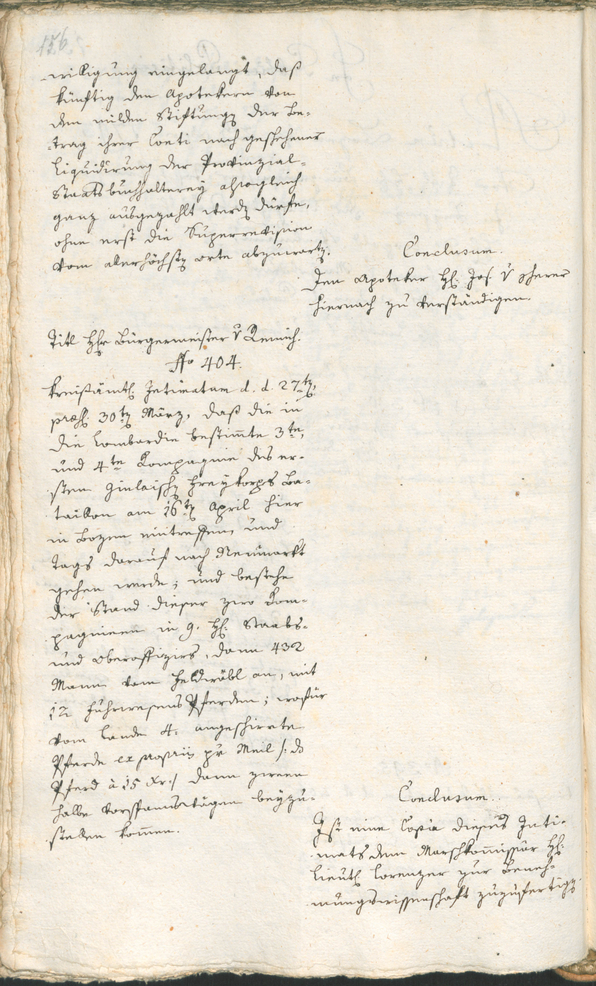 156.
willigung eingelangt, daß
künftig den Apotekern von
den milden Stiftungen der Be-
trag ihrer Conti nach geschehener
Liquidirung der Provinzial-
Staatsbuchhalterey alsogleich
ganz ausgezahlt werden dürfe,
ohne erst die Superrevision
vom allerhöchsten orte abzuwarten.
Conclusum.
Den Apoteker H: Jos. v
hiernach zu verständigen.
Titl H: Bürgermeister v
No 404.
Kreisämtl: Intimatum d. d. 27ten,
praes: 30ten März, daß die in
die Lombardie bestimte 3te,
und 4te Kompagnie des er-
sten Giulaischen Freykorps Ba-
taillon am 16ten April hier
in Bozen eintreffen, und
tags darauf nach Neumarkt
gehen werde; und bestehe
der Stand dieser zwo Kom-
pagnieen in 9. H: Staabs-
und Oberoffizirs, dann 432
Mann vom Feldwäbl an, mit
12 Fuhrwesens Pferden; wofür
vom Lande 4. angeschirrte
Pferde ex propriis pr Meil /: das
Pferd à 15 Xr:/ dann zween
halbe Vorspannswägen beyzu-
stellen kommen.
Conclusum.
Ist eine Copia dieses Inti-
mats dem Marschkommissär H:
Lieut: Lorenzer zur Beneh-
mungswissenschaft zuzufertigen.